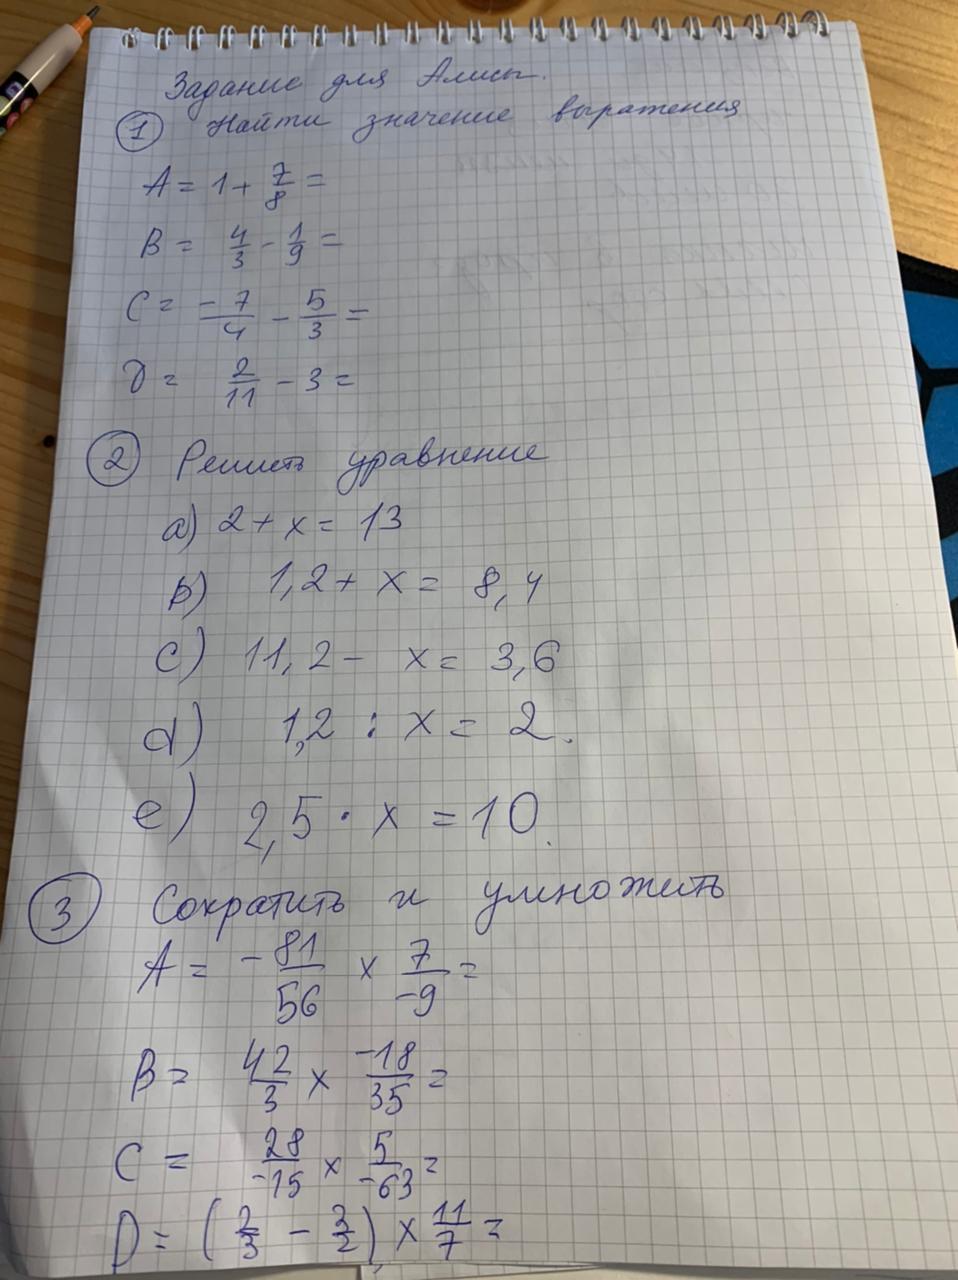 Задание для Алисы.
1 Найти значение выражения
A = 1 + 7/8 =
B = 4/3 - 1/9 =
C = -7/4 - 5/3 =
D = 2/11 - 3 =
2 Решить уравнение
a) 2 + x = 13
b) 1,2 + x = 8,4
c) 11,2 - x = 3,6
d) 1,2 : x = 2.
e) 2,5 · x = 10.
3 Сократить и умножить
A = - 81/56 × 7/-9 =
B = 42/3 × -18/35 =
C = 28/-15 × 5/-63 =
D = (2/3 - 3/2) × 11/7 =